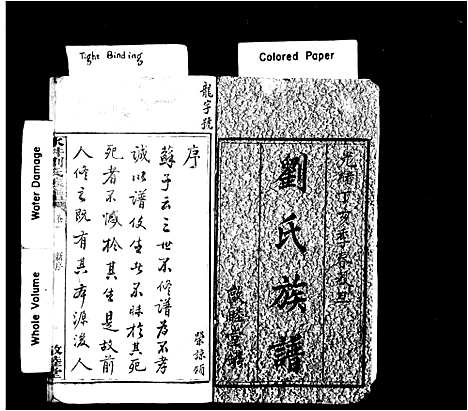 Tight Binding
Colored Paper
Water Damage
Whole Volume
劉氏族譜
光緒丁亥季春穀旦
敦睦堂
龍字號
序
蘇子云三世不修譜為不孝
誠以譜使生者不昧於其死
死者不憾於其生是故前
人修之既有其本源後人
敦睦堂